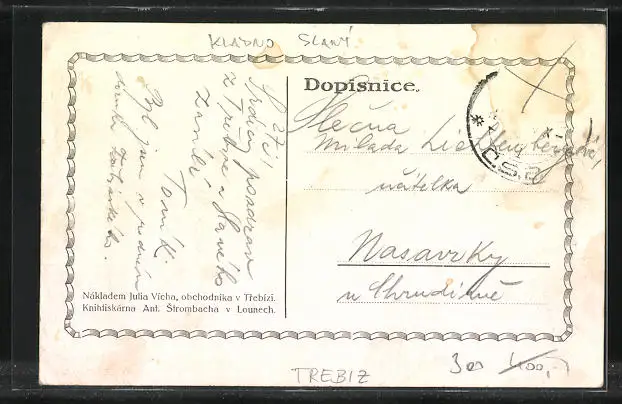 KLADNO SLANÝ
Dopisnice.
Slečna
Milada Lichtenbergová,
učitelka
Nasavrky
u Chrudimě
Srdečný pozdrav
z Třebíze u Slaného
zasílá
Toník.
Byl jsem v rodném
domku
Nákladem Julia Vícha, obchodníka v Třebízi.
Knihtiskárna Ant. Štrombacha v Lounech.
Č.S.P.
TREBIZ
300 400,-